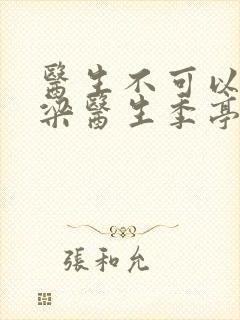 醫生不可以
梁醫生季亭
張和允